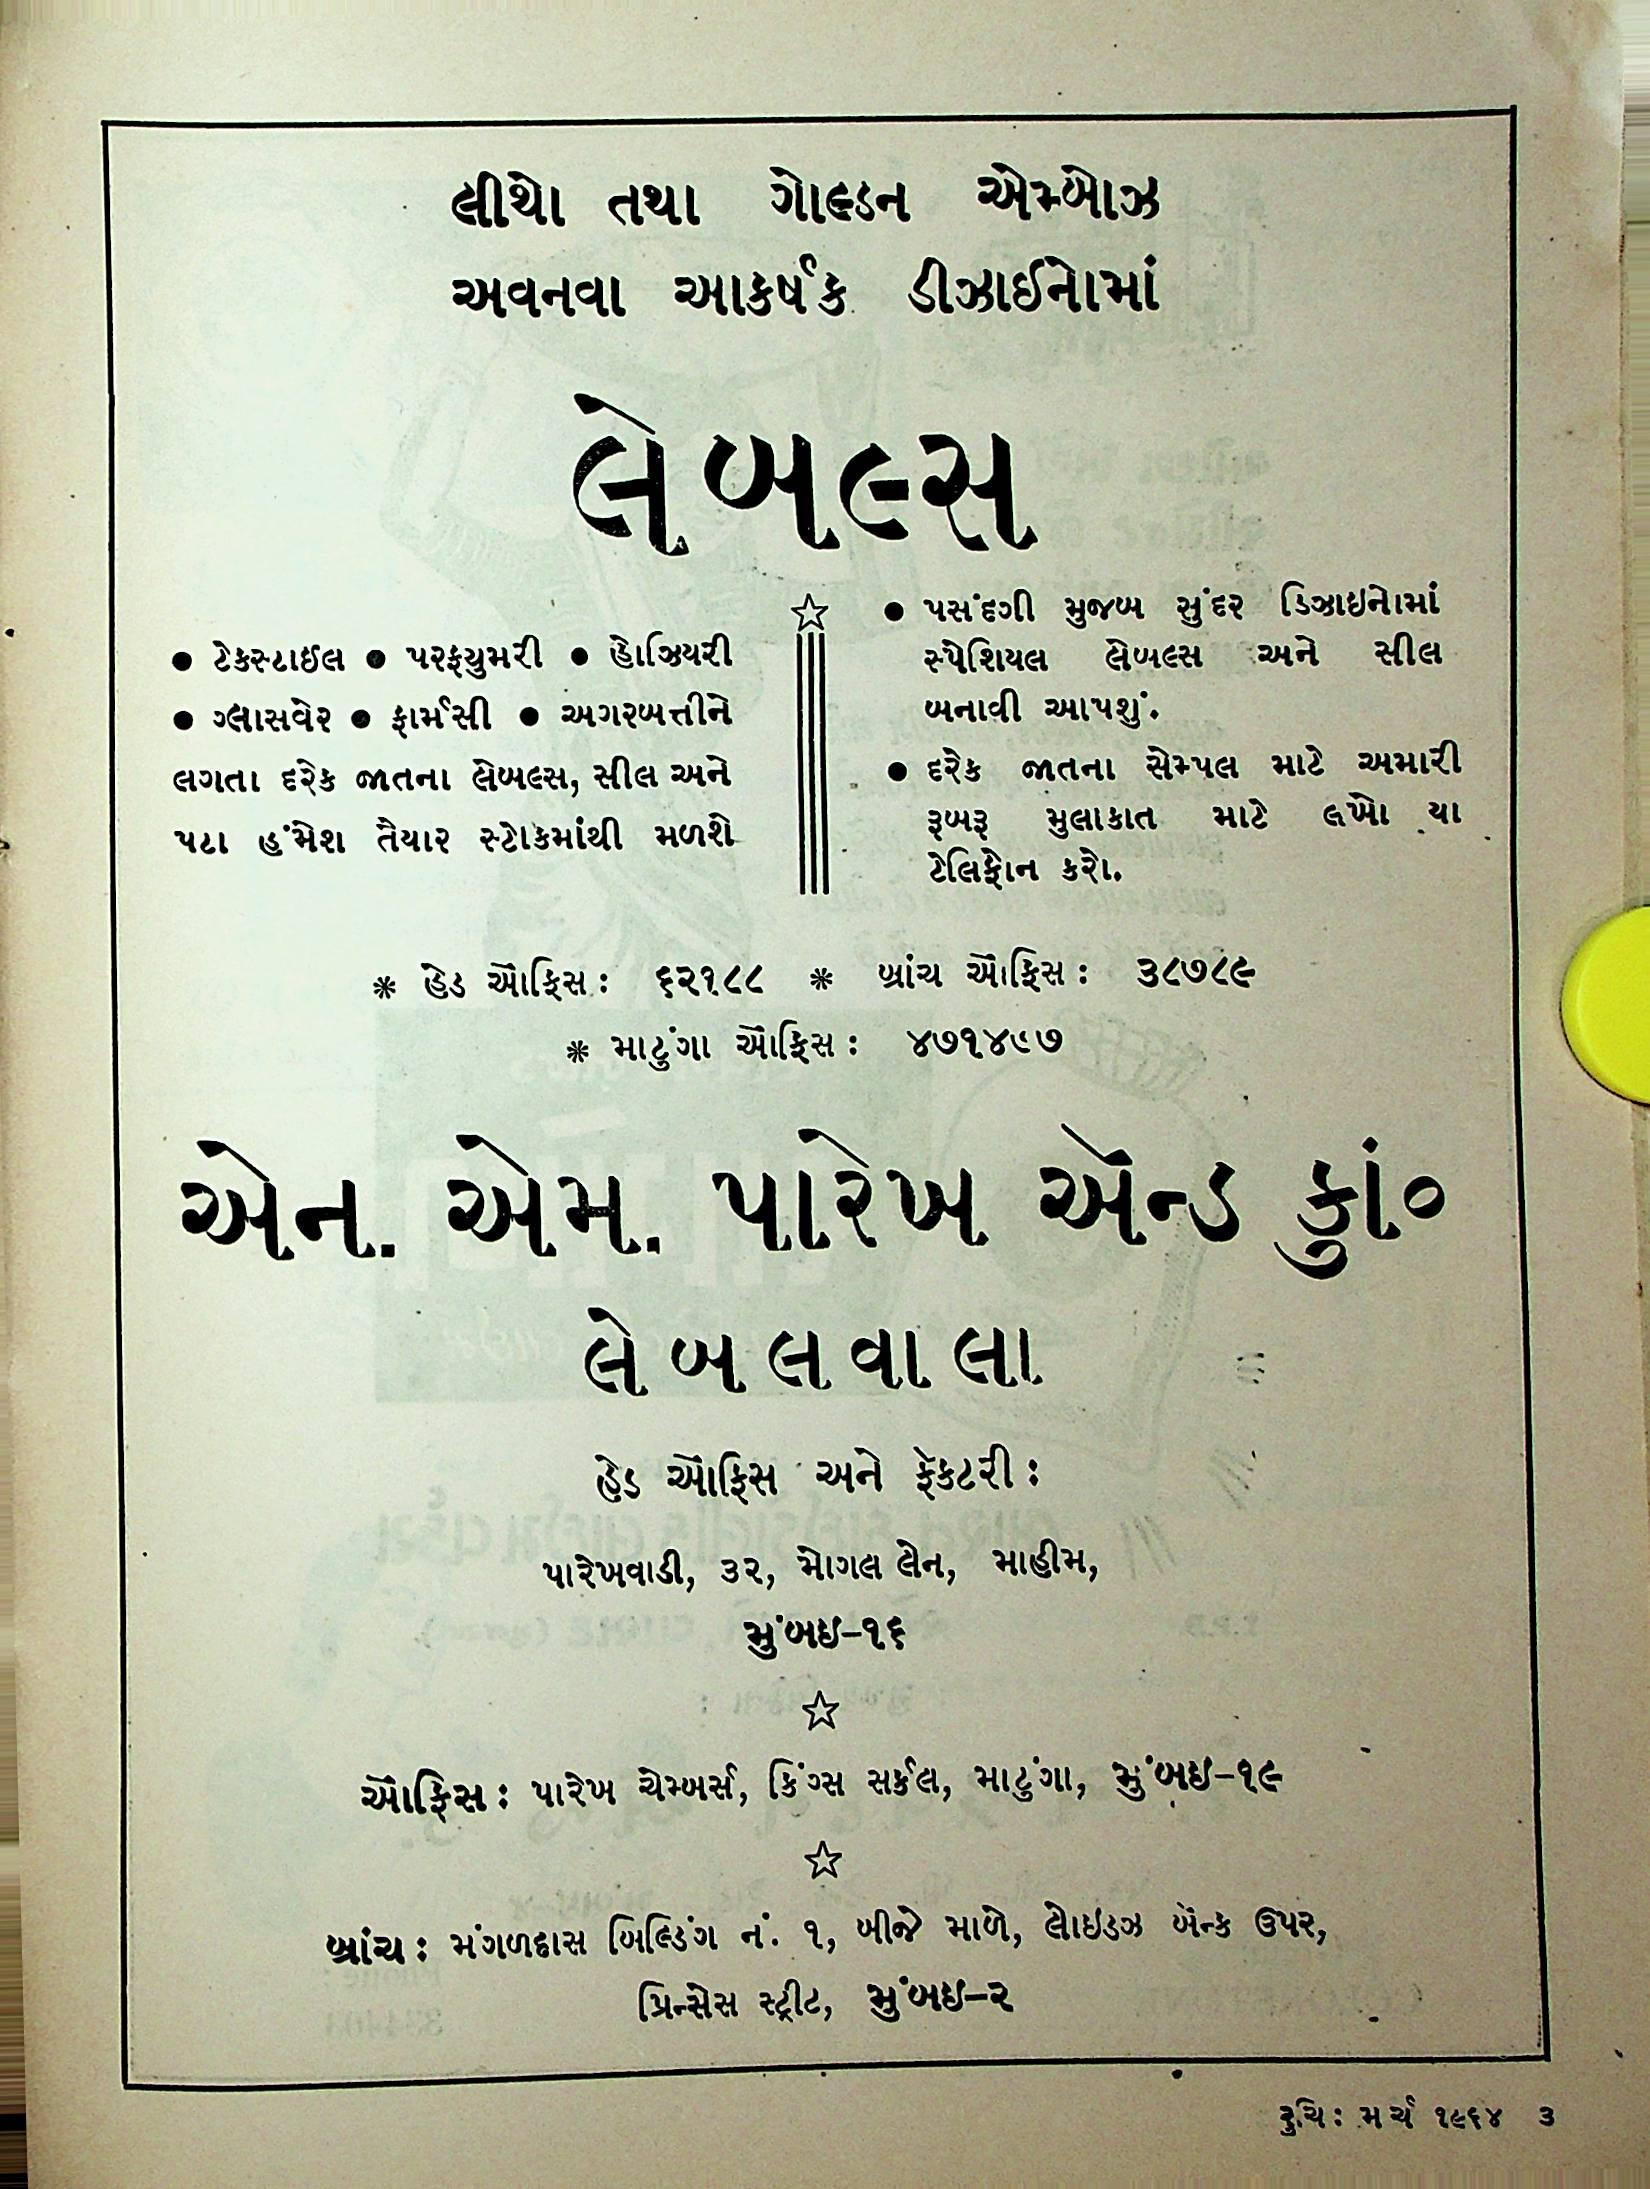 લીથો તથા ગોલ્ડન એમ્બોઝ
અવનવા આકર્ષક ડીઝાઈનોમાં
લેબલ્સ
● ટેકસ્ટાઈલ ● પરફ્યુમરી ● હોઝિયરી
● ગ્લાસવેર ● ફાર્મસી ● અગરબત્તીને
લગતા દરેક જાતના લેબલ્સ, સીલ અને
પટા હંમેશ તૈયાર સ્ટોકમાંથી મળશે
● પસંદગી મુજબ સુંદર ડિઝાઇનોમાં
સ્પેશિયલ લેબલ્સ અને સીલ
બનાવી આપશું.
● દરેક જાતના સેમ્પલ માટે અમારી
રૂબરૂ મુલાકાત માટે લખો યા
ટેલિફોન કરો.
* હેડ ઑફિસ : ૬૨૧૮૮ * બ્રાંચ ઑફિસ : ૩૮૭૮૯
* માટુંગા ઑફિસ : ૪૭૧૪૯૭
એન. એમ. પારેખ ઍન્ડ કુાં૦
લેબલવાલા
હેડ ઑફિસ અને ફેકટરી :
પારેખવાડી, ૩૨, મોગલ લેન, માહીમ,
મુંબઇ-૧૬
ઑફિસ : પારેખ ચેમ્બર્સ, કિંગ્સ સર્કલ, માટુંગા, મુંબઇ-૧૯
બ્રાંચ : મંગળદાસ બિલ્ડિંગ નં. ૧, બીજે માળે, લોઇડઝ બૅન્ક ઉપર,
પ્રિન્સેસ સ્ટ્રીટ, મુંબઇ-૨
રુચિ : માર્ચ ૧૯૬૪ ૩